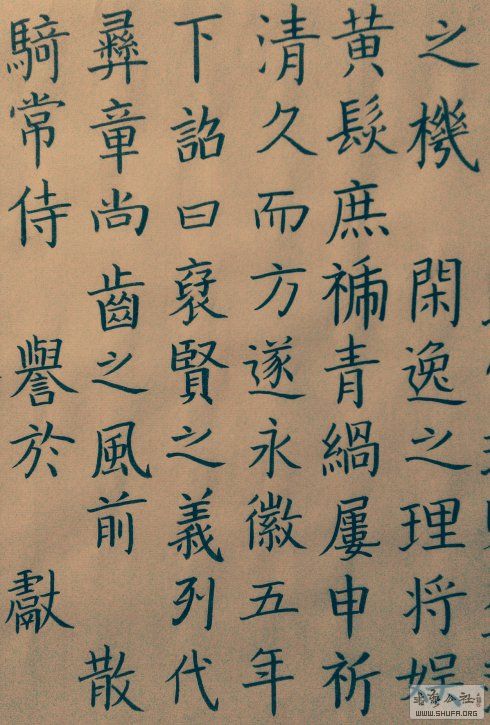 之機 閑逸之理将娱
黄髮庶青緺屢申祈
清久而方遂永徽五年
下詔曰賢之義列代
彝章尚齒之風前 散
騎常侍 譽於 獻
公社
WWW.SHUFA.ORG